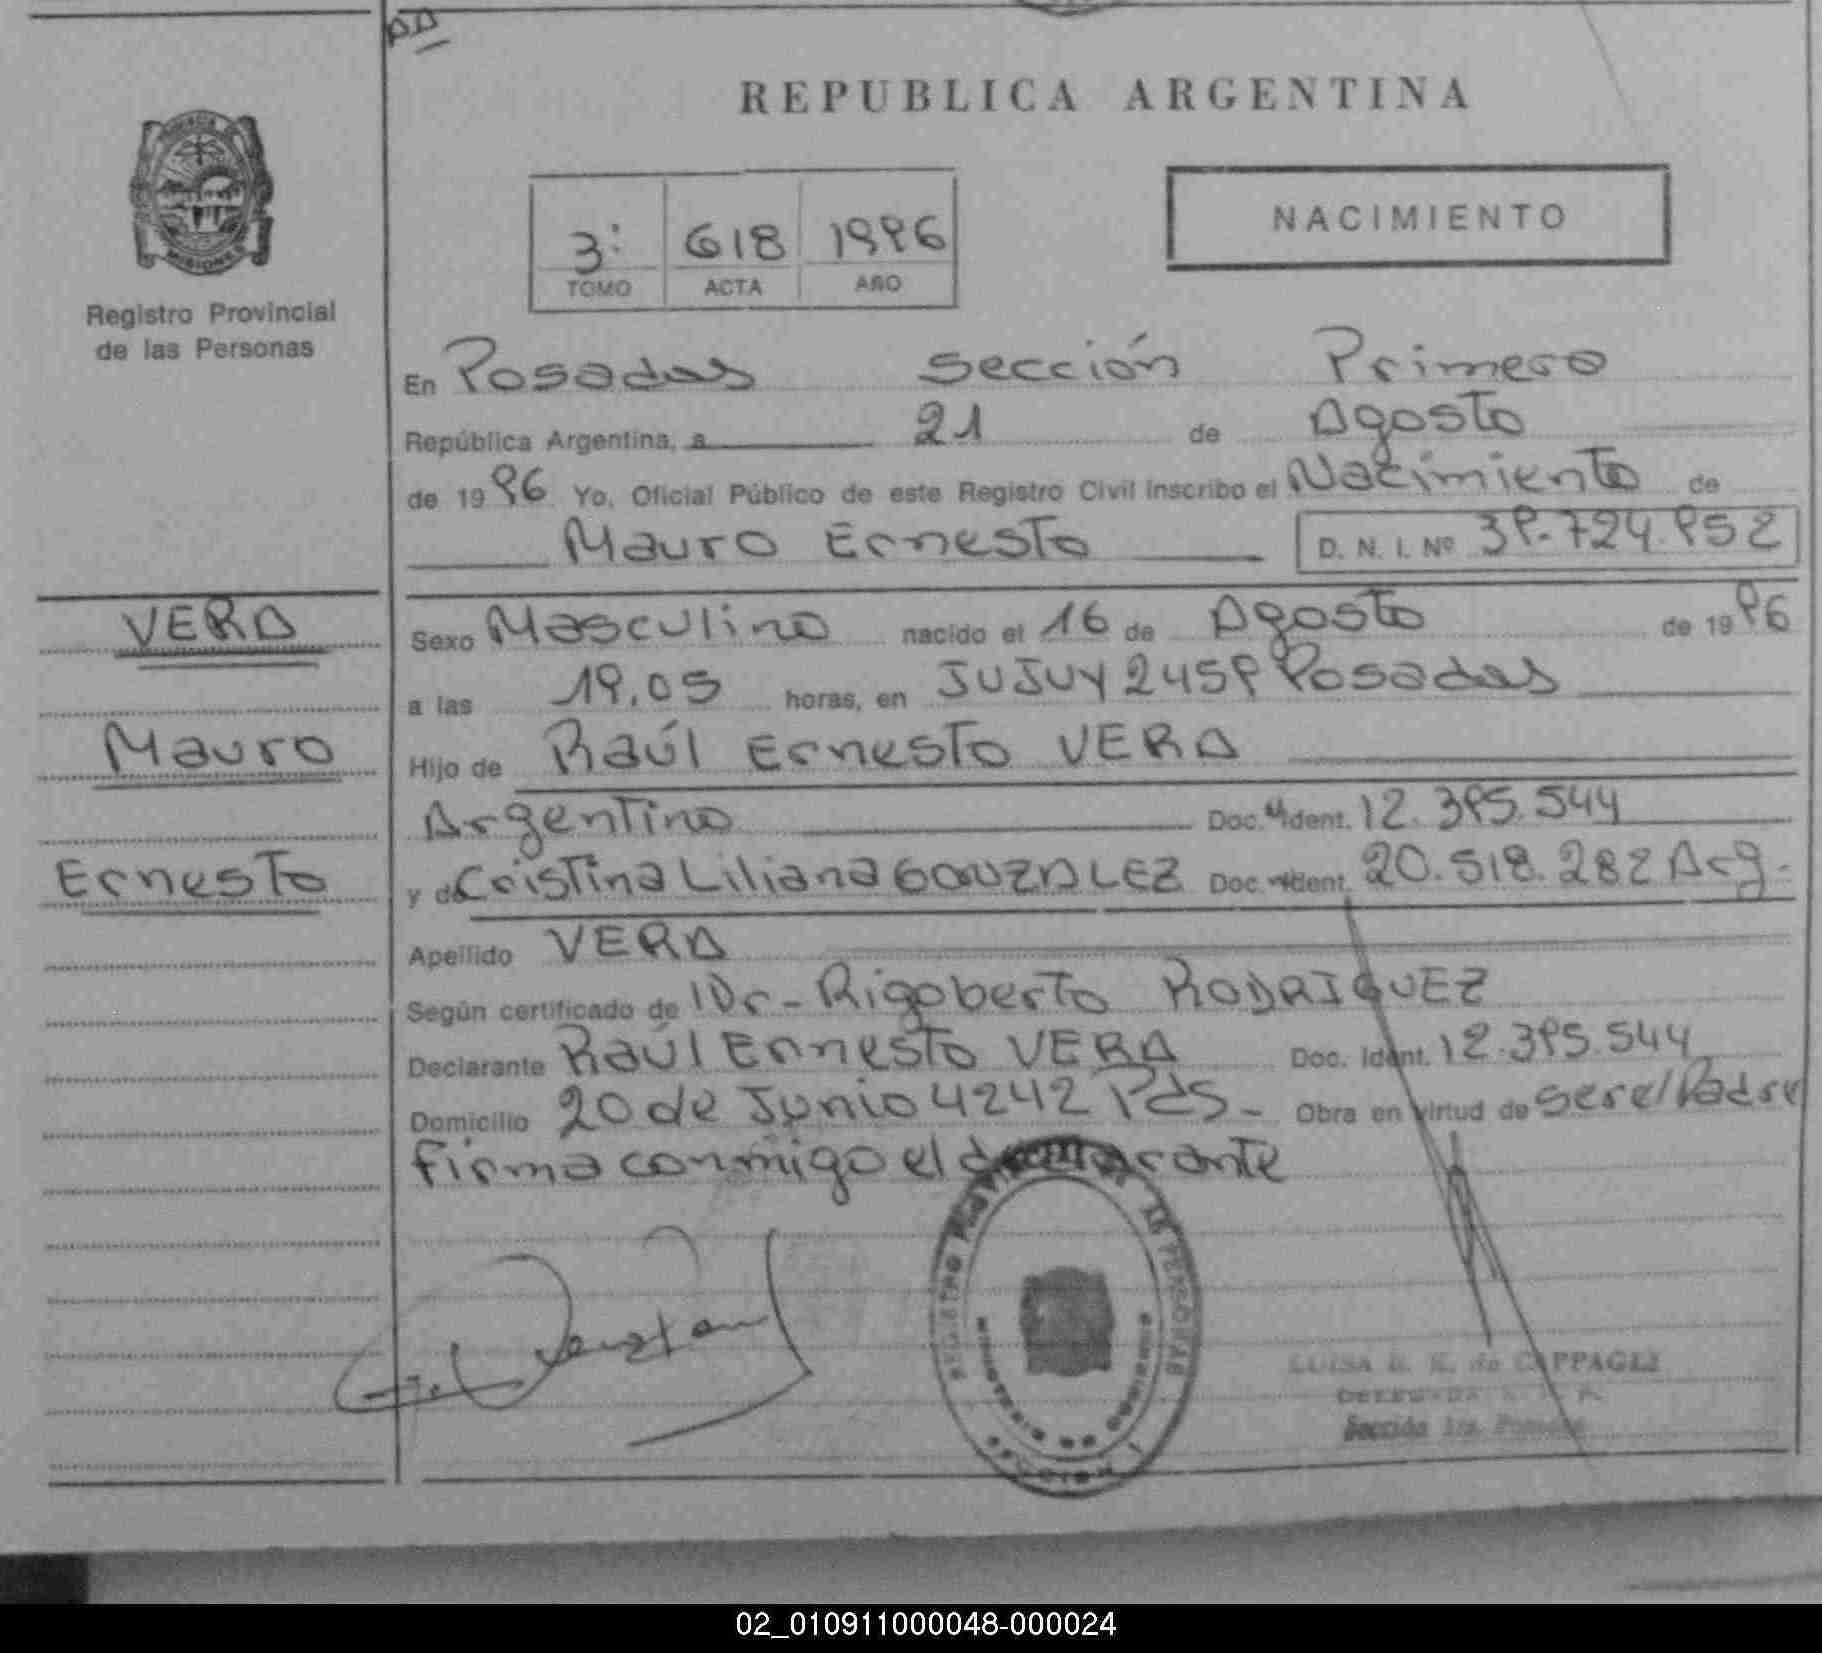 AA
REPUBLICA ARGENTINA
MISIONES
Registro Provincial
de las Personas
3: 618 1996
TOMO ACTA AÑO
NACIMIENTO
En Posadas sección Primera
República Argentina, a 21 de Agosto
de 1996 Yo, Oficial Público de este Registro Civil inscribo el Nacimiento de
Mauro Ernesto D. N. I. Nº 39.724.952
VERA
Mauro
Ernesto
Sexo Masculino nacido el 16 de Agosto de 1996
a las 19,05 horas, en JUJUY 2459 Posadas
Hijo de Raúl Ernesto VERA
Argentino Doc. Ident. 12.395.544
y de Cristina Liliana GONZALEZ Doc. Ident. 20.518.282 Arg.
Apellido VERA
Según certificado de Dr- Rigoberto RODRIGUEZ
Declarante Raúl Ernesto VERA Doc. Ident. 12.395.544
Domicilio 20 de Junio 4242 Pds- Obra en virtud de ser el Padre
Firma conmigo el declarante
LAS PERSONAS
MINISTERIO DE GOBIERNO
SECCION 1
LUISA de CAPPAGLI
DELEGADA
Sección 1ra. Posadas
02_010911000048-000024